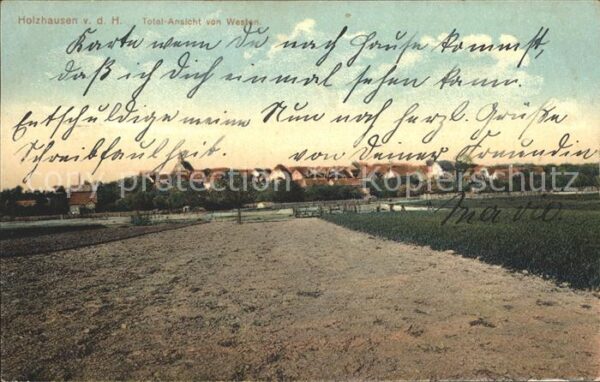 Holzhausen v. d. H. Total-Ansicht von Westen.
Karte wenn Du nach Hause kommst,
daß ich Dich einmal sehen kann.
Entschuldige meine Schreibfaulheit.
Nun noch herzl. Grüße
von Deiner Freundin
Kopierschutz Kopierschutz Kopierschutz